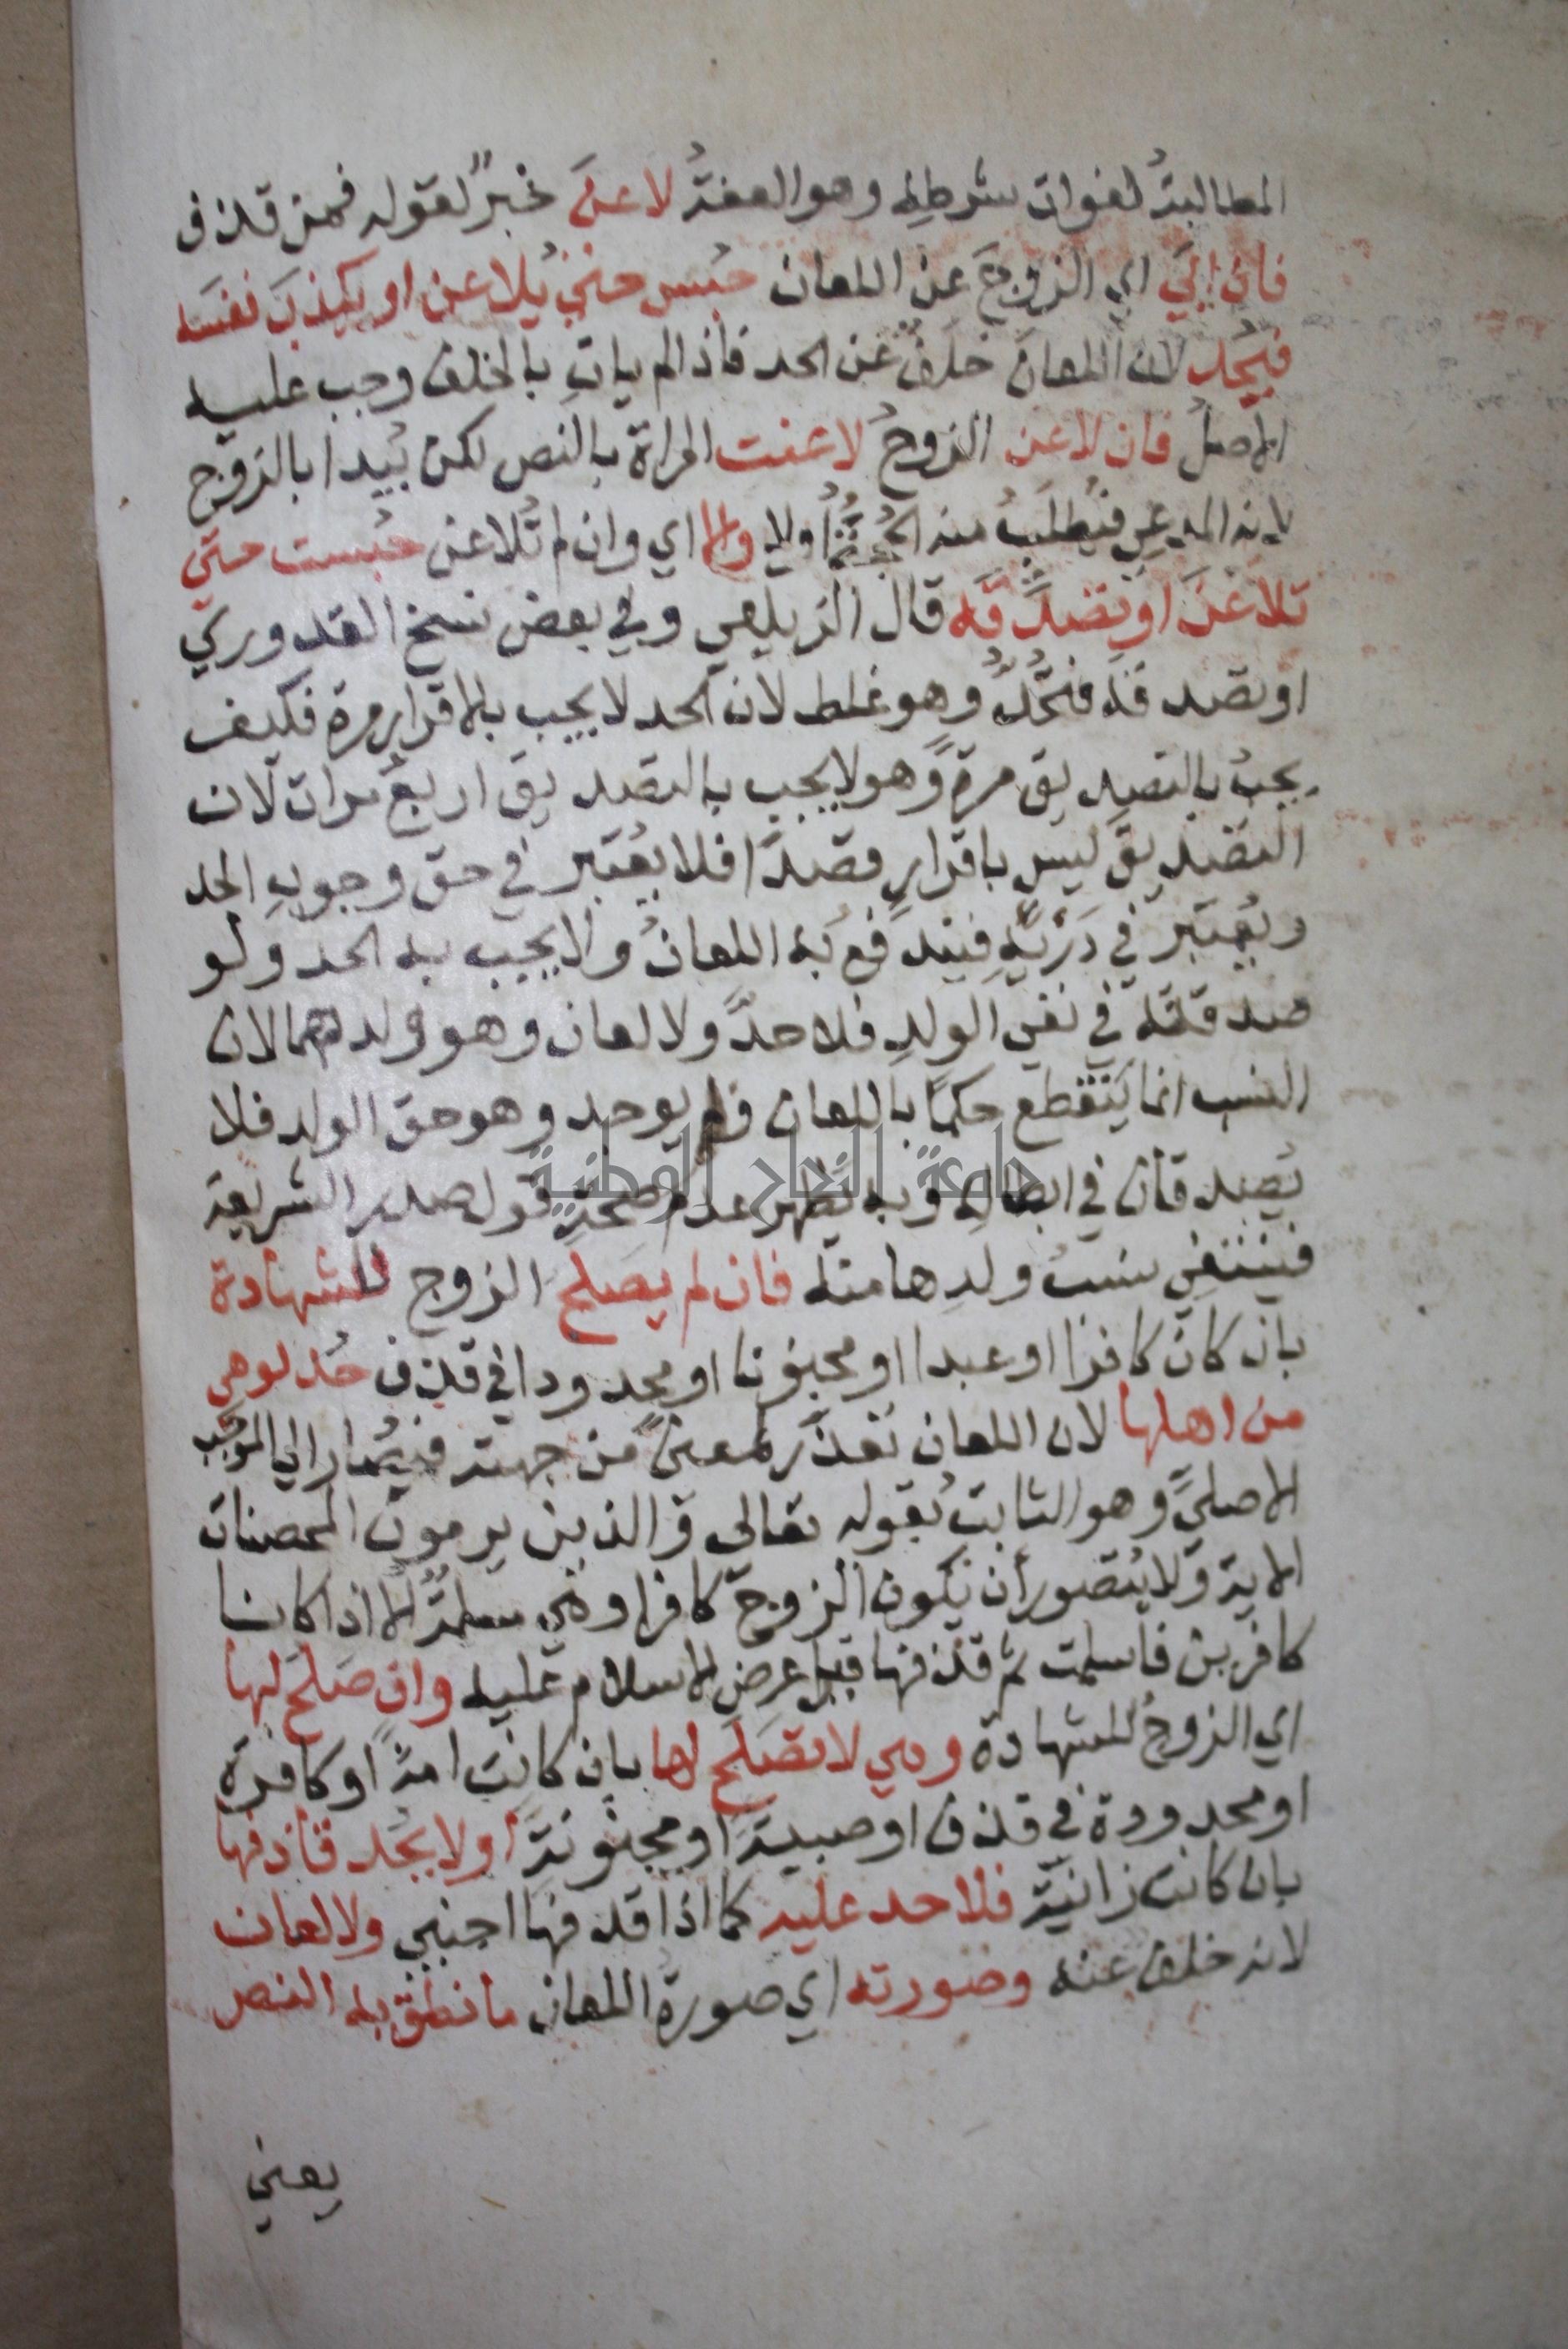 المطالبة لفوات شرطه وهو العفة لاعن خبر لقوله فمن قذف
فان ابى اي الزوج عن اللعان حبس حتى يلاعن او يكذب نفسه
فيحد لان اللعان خلف عن الحد فاذا لم يات بالخلف وجب عليه
الاصل فان لاعن الزوج لاعنت المراة بالنص لكن يبدا بالزوج
لانه المدعي فيطلب منه الحجة اولا والا اي وان لم تلاعن حبست حتى
تلاعن او تصدقه قال الزيلعي وفي بعض نسخ القدوري
او تصدقه فتحد وهو غلط لان الحد لا يجب بالاقرار مرة فكيف
يجب بالتصديق مرة وهو لا يجب بالتصديق اربع مرات لان
التصديق ليس باقرار قصدا فلا يعتبر في حق وجوب الحد
ويعتبر في درئه فيندفع به اللعان ولا يجب به الحد ولو
صدقته في نفي الولد فلا حد ولا لعان وهو ولدهما لان
النسب انما ينقطع حكما باللعان فلم يوجد وهو حق الولد فلا
يصدقان في ابطاله وبه يظهر عدم صحة قول صدر الشريعة
فينتفي نسب ولدها منه فان لم يصلح الزوج للشهادة
بان كان كافرا او عبدا او مجنونا او محدودا في قذف حد لو هي
من اهلها لان اللعان تعذر لمعنى من جهته فيصار الى الموجب
الاصلي وهو الثابت بقوله تعالى والذين يرمون المحصنات
الاية ولا يتصور ان يكون الزوج كافرا وهي مسلمة الا اذا كانا
كافرين فاسلمت ثم قذفها قبل عرض الاسلام عليه وان صلح لها
اي الزوج للشهادة وهي لا تصلح لها بان كانت امة او كافرة
او محدودة في قذف او صبية او مجنونة او لا يحد قاذفها
بان كانت زانية فلا حد عليه كما اذا قذفها اجنبي ولا لعان
لانه خلف عنه وصورته اي صورة اللعان ما نطق به النص
يعني
جامعة النجاح الوطنية